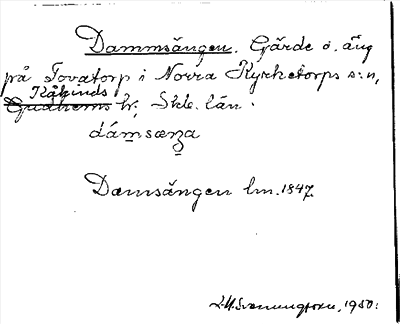 Dammsängen. Gärde o. äng
på Tovatorp i Norra Kyrketorps s:n,
Kåkinds
Gudhems hr, Skb. län.
dámsæŋa
Damsängen lm. 1847.
1950.